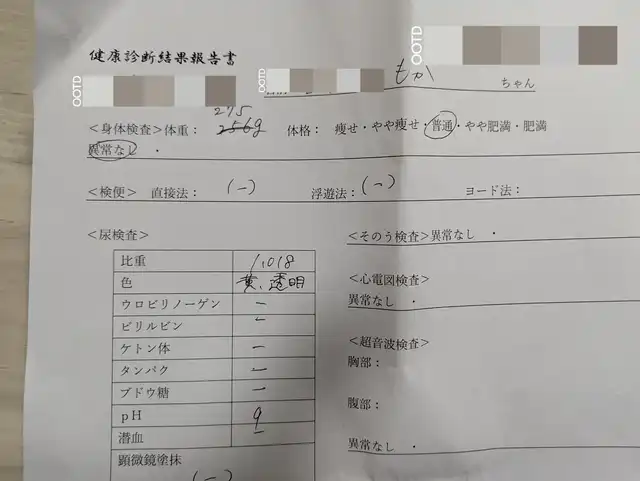 健康診断結果報告書
OOTD
OOTD
OOTD
もか ちゃん
275
<身体検査>体重： 256g 体格： 痩せ・やや痩せ・普通・やや肥満・肥満
異常なし ・
<検便> 直接法： (－) 浮遊法： (－) ヨード法：
<尿検査>
比重 1.018
色 黄、透明
ウロビリノーゲン －
ビリルビン －
ケトン体 －
タンパク －
ブドウ糖 －
pH 9
潜血 －
顕微鏡塗抹
(－)
<そのう検査>異常なし ・
<心電図検査>
異常なし ・
<超音波検査>
胸部：
腹部：
異常なし ・